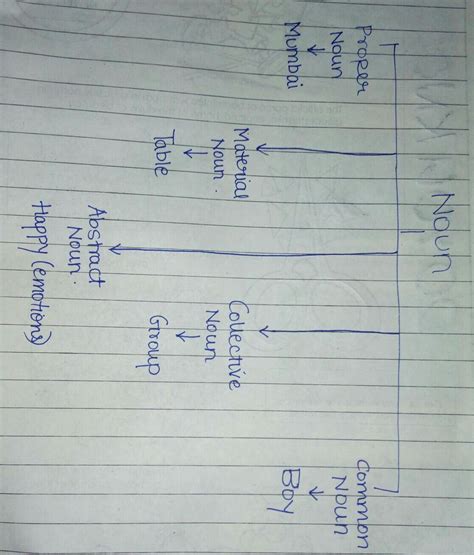 Noun
Proper
Noun
Mumbai
Material
Noun.
Table
Abstract
Noun.
Happy (emotions)
Collective
Noun
Group
Common
Noun
Boy